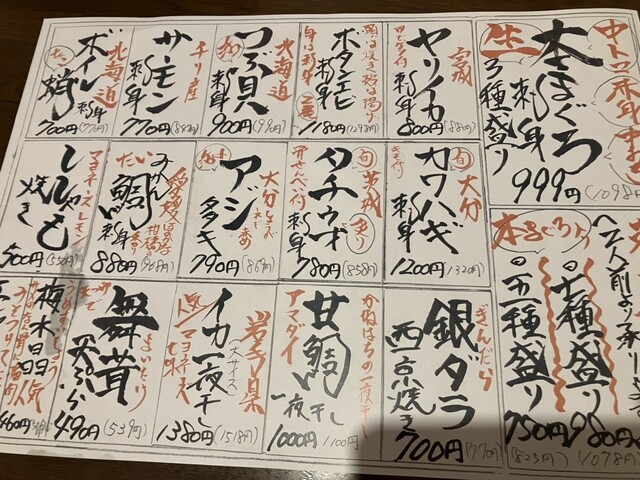 中トロ 赤身
生
本まぐろ
刺身
3種盛り
999円(1098円)
宮城
ヤリイカ
刺身
800円(880円)
ボタンエビ
刺身
1180円(1298円)
北海道
つぶ貝
刺身
900円(990円)
チリ産
サーモン
刺身
770円(847円)
北海道
ボイル
蛸
刺身
700円(770円)
本まぐろ入り
2人前より承り
七種盛り
980円
(1078円)
五種盛り
750円
(825円)
大分
旬
カワハギ
刺身
1200円(1320円)
茨城
旬
タチウオ
刺身
780円(858円)
大分
アジ
タタキ
790円(869円)
愛媛
みかん
鯛
たい
刺身
880円(968円)
マヨネーズ レモン
ししゃも
焼き
500円(550円)
ぎんだら
銀ダラ
西京焼き
700円(770円)
かねはちの一夜干し
甘鯛
アマダイ
一夜干し
1000円(1100円)
岩手県
イカ一夜干し
マヨネーズ
七味
1380円(1518円)
まいたけ
舞茸
天ぷら
490円(539円)
梅水晶
460円